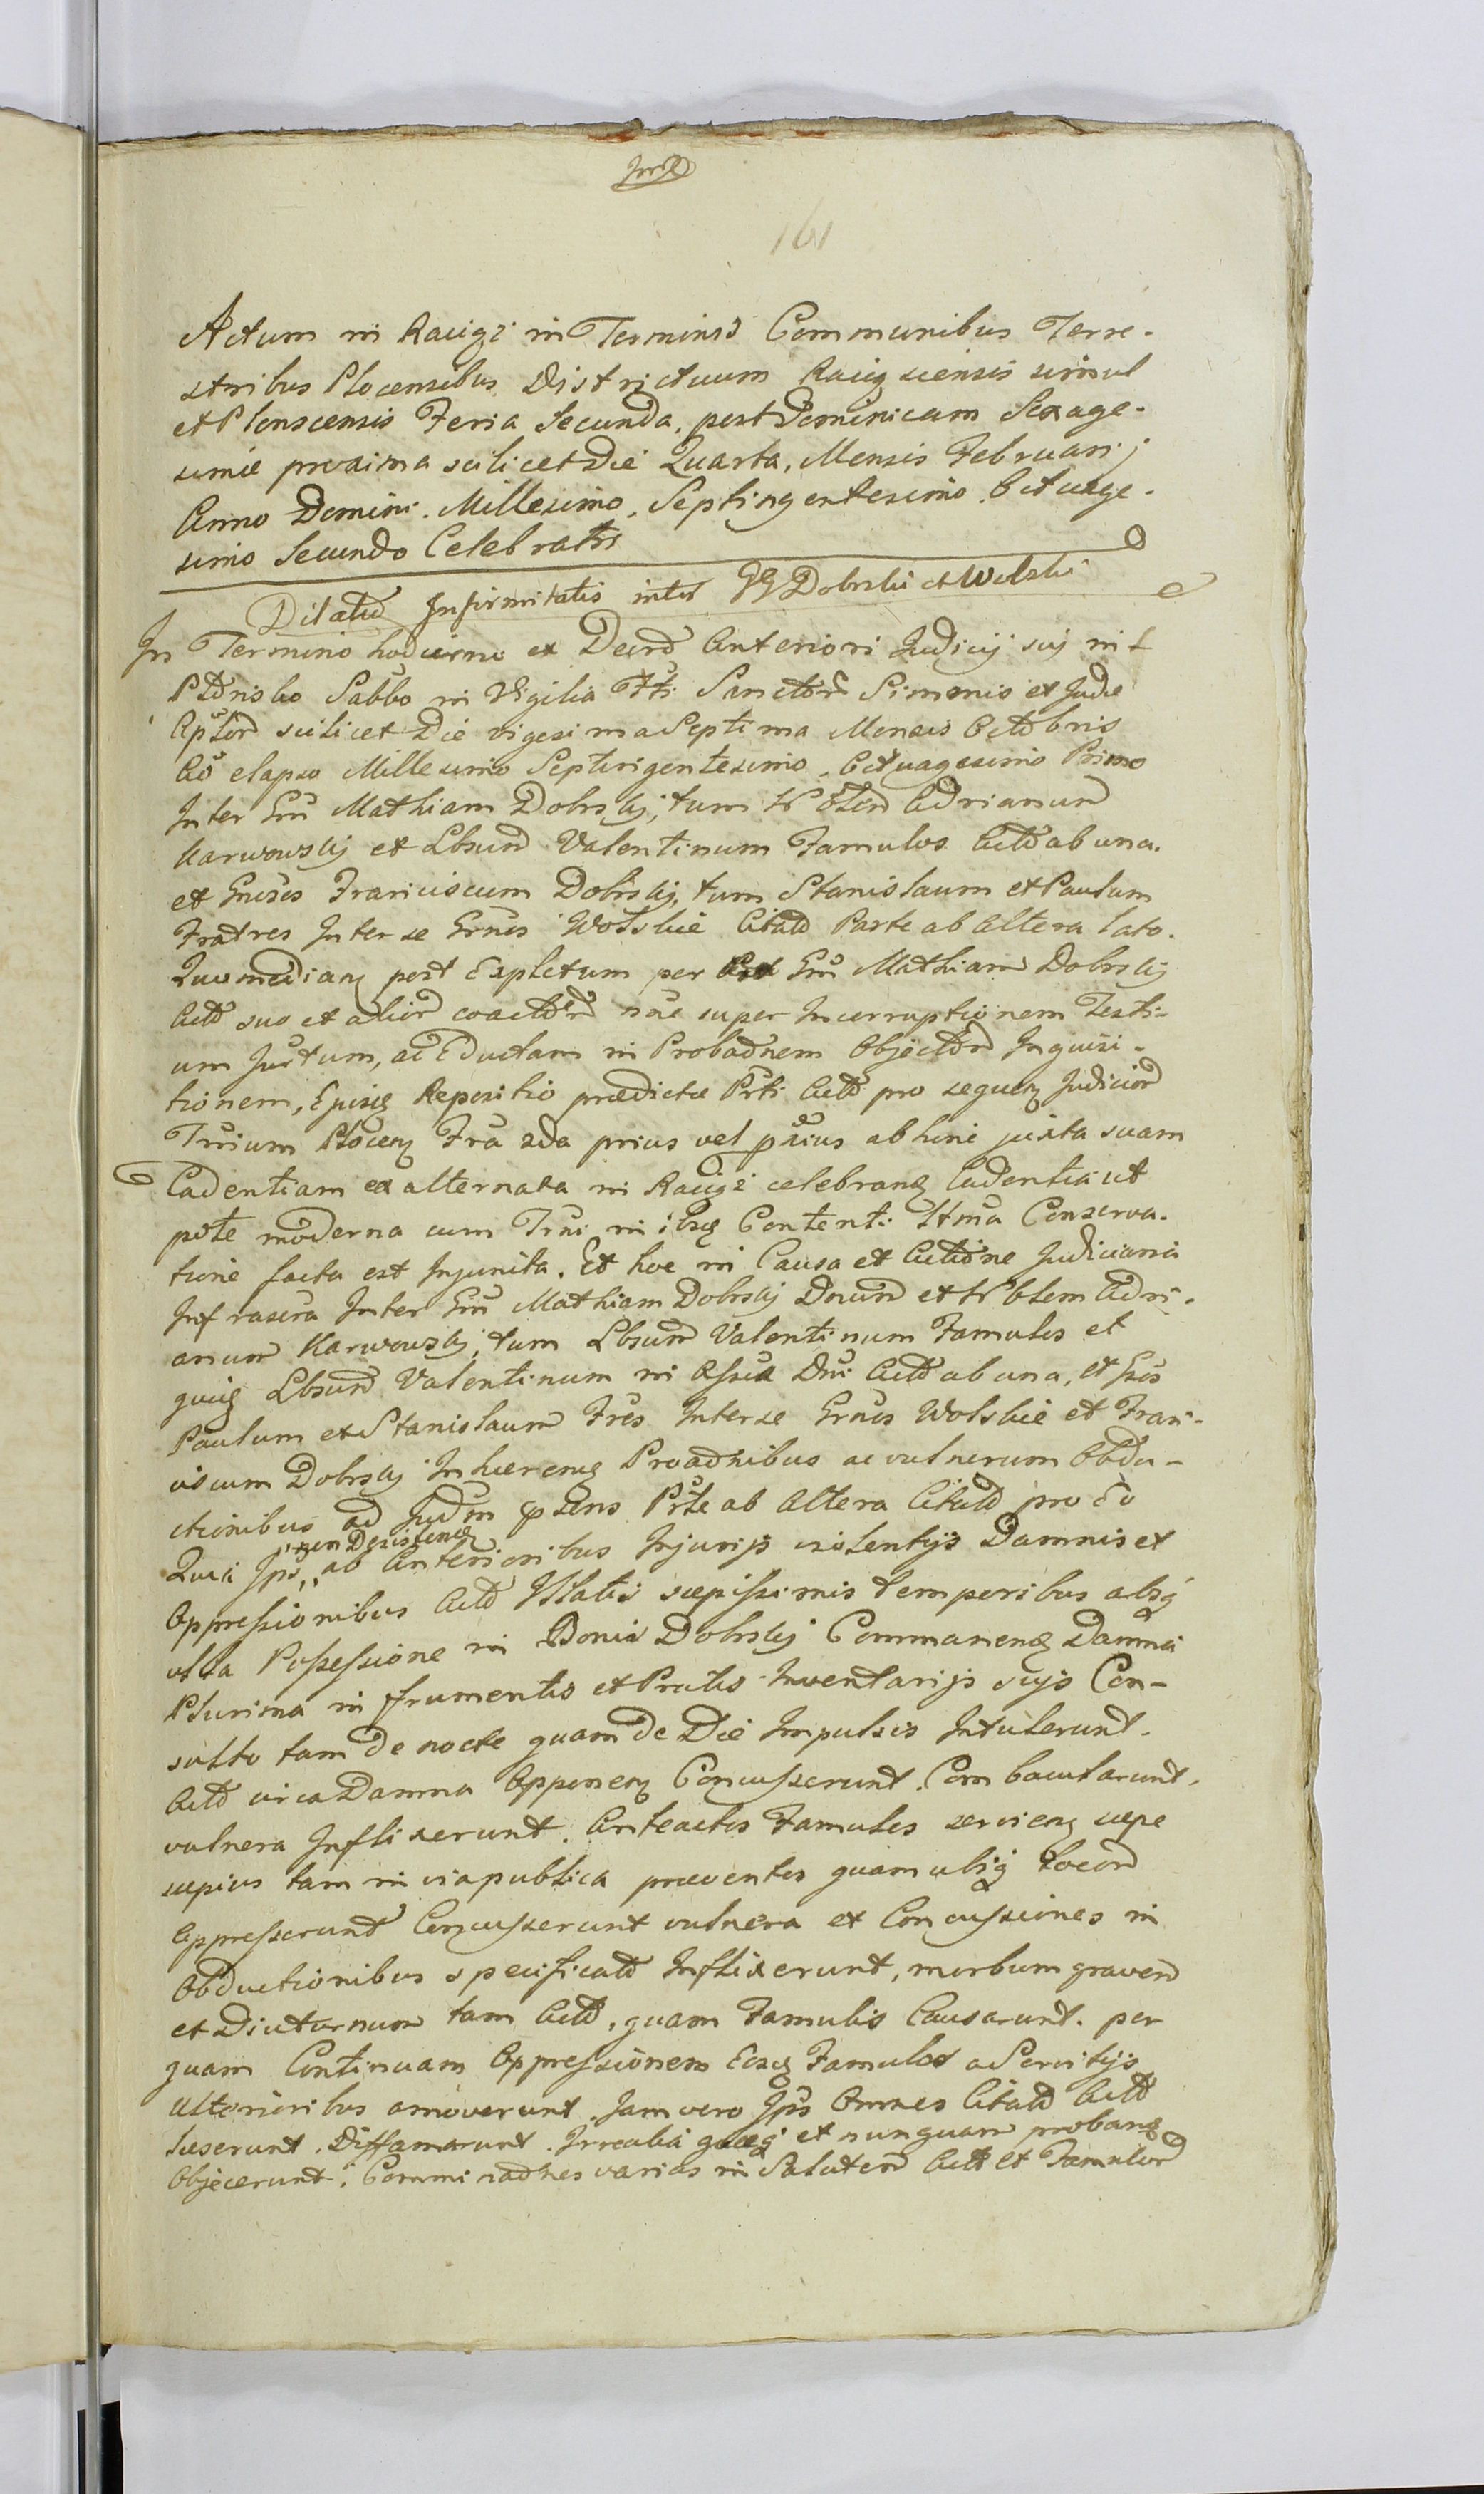 161
Actum in Raciąż in Terminis Communibus Terre-
stribus Plocensibus Districtuum Raciązensis simul
et Plonscensis Feria Secunda, post Dominicam Sexage-
simæ proxima scilicet Die Quarta, Mensis Februarij
Anno Domini. Millesimo, Septingentesimo Octuage-
simo Secundo Celebratis
Dilatio Infirmitatis inter GG Dobrski et Wolski
In Termino hodierno ex Decrō Anteriori Judicij sui in
Sabbo in Vigilia Fti Sanctor̄ Simonis et Judæ
Aplor̄ scilicet Die vigesima Septima Mensis Octobris
Aō elapso Millesimo Septingentesimo Octuagesimo Primo
Inter Gm̄ Mathiam Dobrskj, tum Adrianum
Karwowskj et Lbsum Valentinum Famulos Act̄ ab una.
et Franciscum Dobrskj, tum Stanislaum et Paulum
Fratres Inter se Grn̄os Wolskie Citat̄ Parte ab altera lato.
Quo medianꝫ post Expletum per Gm̄ Mathiam Dobrskj
Act̄ suo et alior̄ nōe super Incorruptionem Testi-
um Jur̄tum, ac Eductam in Probaōnem Objector̄ Inquisi-
tionem, Ejusꝗ Repositio prædictæ Prt̄i Act̄ pro sequenꝫ Judicior̄
Trrium Plocenꝫ Fra 2da prius vel p̄xius ab hinc juxta suam
Cadentiam ex alternata in Raciąż celebranꝫ Cadentia ut
pote moderna cum Trn̄i in ibsꝗ Contenti Ttma Conserva-
tione facta est Injuncta. Et hoc in Causa et Actiōne Judiciaria
Infrascr̄a Inter Gm̄ Mathiam Dobrskj Dnum̄ et Nblem Adri-
anum Karwowskj, tum Lbsum̄ Valentinum Famulos et
quiꝗ Lbsum̄ Valentinum in Assā Dn̄i Act̄ ab una, et Gsos
Paulum et Stanislaum Frēs Inter se Grn̄os Wolskie et Fran-
ciscum Dobrskj Inhærenꝗ Proaōnibus ac vulnerum Obdu-
ctionibus ad Judm̄ p̄sens Prt̄e ab altera Citat̄ pro Eo
non Desistenꝗ
Quia Ips̄i ab Anterioribus Injurijs violentijs Damnis et
Oppressionibus Act̄ Illatis sæpissimis temporibus absꝗ
ulla Possessione in Bonis Dobrskj Commanenꝗ Damna
Plurima in frumentis et Pratis Inventarijs suis Con-
sulto tam de nocte quam de Die Impulsis Intulerunt.
Act̄ circa Damna Opponenꝫ Concusserunt. Combacularunt.
vulnera Inflixerunt. Anteactos Famulos servienꝫ sæpe
sæpius tam in via publica præventos quam ubiꝗ locor̄
Oppresserunt Concusserunt vulnera et Concussiones in
Obductionibus specificat̄ Inflixerunt, morbum gravem̄
et Diuturnum tam Act̄, quam Famulis Causarunt. per
quam Continuam Oppressionem Eosꝗ Famulos a Servitijs
Ulterioribus amoverunt. Jam vero Ips̄ Omnes Citat̄ Act̄
læserunt, Diffamarunt. Irrealia quæꝗ et nunquam probanꝗ
Objecerunt. Comminaōnes varias in Salutem̄ Act̄ et Famulor̄